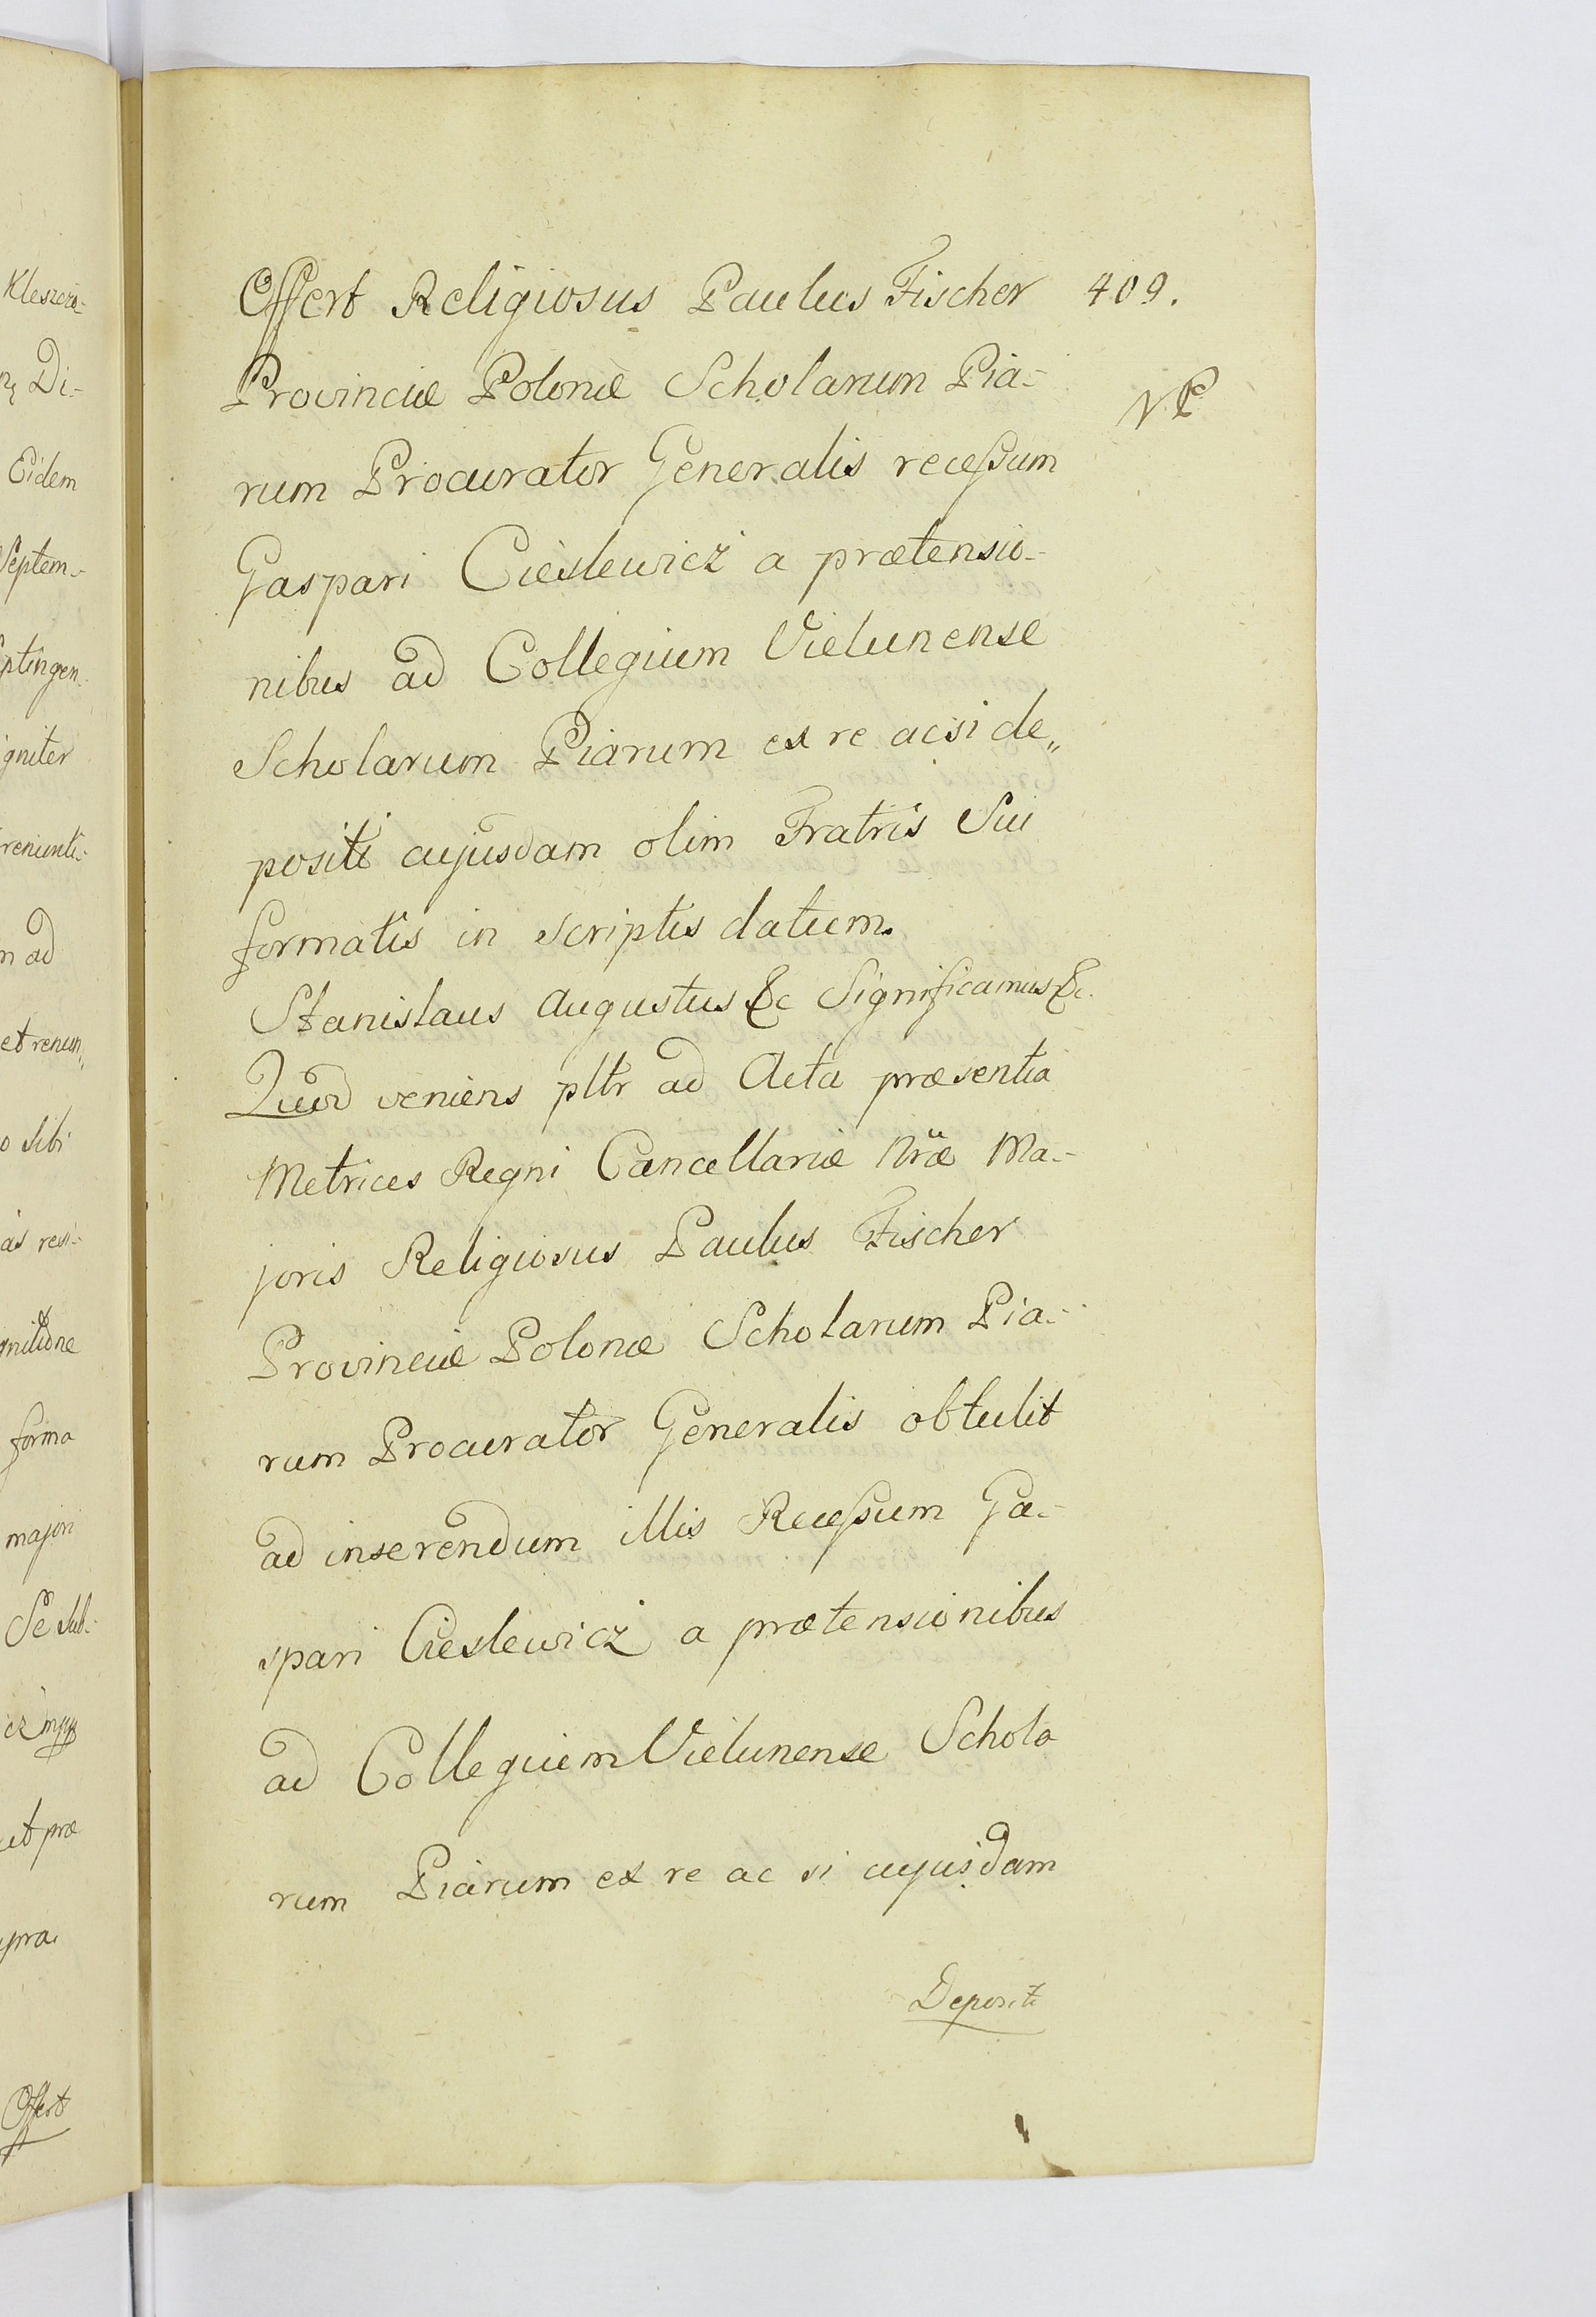 Kleszczo-
Di-
Eidem
Septem-
ptingen-
igniter
renunti-
m ad
et renun,,
o sibi
as resi-
gnitione
forma
majori
Se sub-
cz mpp
ut præ
Offert
Offert Religiosus Paulus Fischer 409.
Provinciæ Polonæ Scholarum Pia- NP
rum Procurator Generalis recessum
Gaspari Cieslewicz a prætensio-
nibus ad Collegium Vielunense
Scholarum Piarum ex re acsi de,,
positi cujusdam olim Fratris Sui
formatis in scriptis datum.
Stanislaus Augustus &c Significamus &c.
Quod veniens pltr ad Acta præsentia
Metrices Regni Cancellariæ Nræ Ma-
joris Religiosus Paulus Fischer
Provinciæ Polonæ Scholarum Pia-
rum Procurator Generalis obtulit
ad inserendum illis Recessum Ga-
spari Cieslewicz a prætensionibus
ad Collegium Vielunense Schola
rum Piarum ex re ac si cujusdam
Depositi